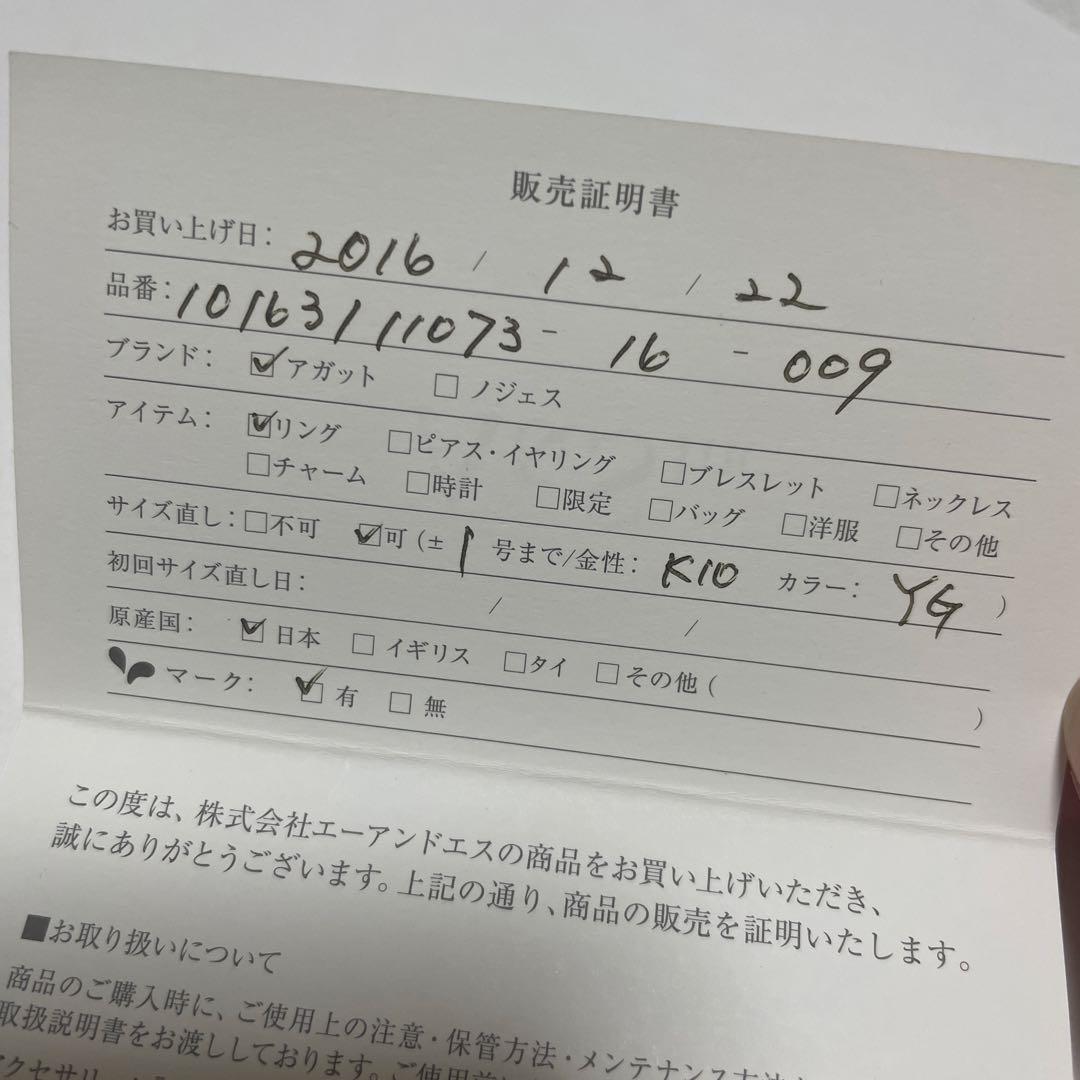 販売証明書
お買い上げ日: 2016 / 12 / 22
品番: 10163111073 - 16 - 009
ブランド: ☑アガット □ノジェス
アイテム: ☑リング □ピアス・イヤリング □ブレスレット □ネックレス
□チャーム □時計 □限定 □バッグ □洋服 □その他
サイズ直し: □不可 ☑可 (± 1 号まで/金性: K10 カラー: YG )
初回サイズ直し日: / /
原産国: ☑日本 □イギリス □タイ □その他 ( )
マーク: ☑有 □無
この度は、株式会社エーアンドエスの商品をお買い上げいただき、
誠にありがとうございます。上記の通り、商品の販売を証明いたします。
■お取り扱いについて
商品のご購入時に、ご使用上の注意・保管方法・メンテナンス方法
取扱説明書をお渡ししております。ご使用前に